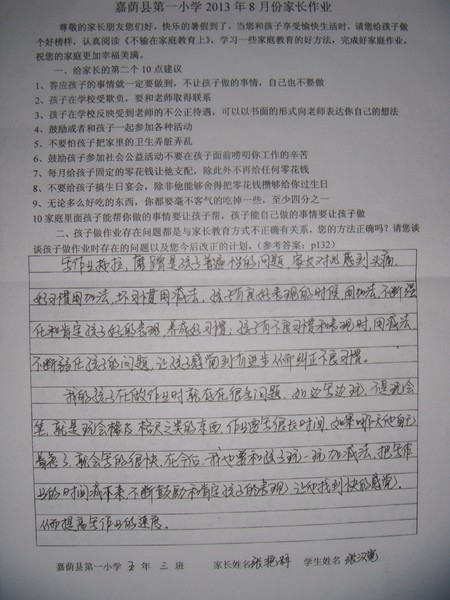 嘉荫县第一小学 2013 年 8 月份家长作业
尊敬的家长朋友您们好，快乐的暑假到了，当您和孩子享受愉快生活时，请您给孩子做
个好榜样，认真阅读《不输在家庭教育上》，学习一些家庭教育的好方法，完成好家庭作业，
祝您的家庭更加幸福美满。
一、给家长的第二个 10 点建议
1、答应孩子的事情就一定要做到，不让孩子做的事情，自己也不要做
2、孩子在学校受欺负，要和老师取得联系
3、孩子在学校反映受到老师的不公正待遇，可以以书面的形式向老师表达你自己的想法
4、鼓励或者和孩子一起参加各种活动
5、不要怕孩子把家里的卫生弄脏弄乱
6、鼓励孩子参加社会公益活动不要在孩子面前唠叨你工作的辛苦
7、每月给孩子固定的零花钱让他支配，除此外不再给任何零花钱
8、不要给孩子搞生日宴会，除非他能够舍得把零花钱攒够给你过生日
9、无论多么好吃的东西，你都要毫不客气的吃掉一些，至少四分之一
10 家庭里面孩子能帮你做的事情要让孩子帮，孩子能自己做的事情要让孩子做
二、孩子做作业存在问题都是与家长教育方式不正确有关系，您的方法正确吗？请您谈
谈孩子做作业时存在的问题以及您今后改正的计划。（参考答案：p132）
写作业拖拉，磨蹭是孩子普遍性的问题，家长对此感到头痛。
好习惯用加法，坏习惯用减法，孩子有良好表现的时候，用加法，不断强
化和肯定孩子好的表现，养成好习惯；孩子有不良习惯和表现时，用减法，
不断弱化孩子的问题，让孩子感觉到有进步从而纠正不良习惯。
我的孩子在做作业时就存在很多问题，如边写边玩，不是玩会
笔，就是玩会橡皮、格尺之类的东西，作业要写很长时间，如果哪天他自己
着急了，就会写的很快，在今后，我也要和孩子玩一玩加减法，把写作
业的时间减下来，不断鼓励和肯定孩子的表现，让他找到快的感觉，
从而提高写作业的速度。
嘉荫县第一小学 五 年 三 班 家长姓名 张 学生姓名 张汉